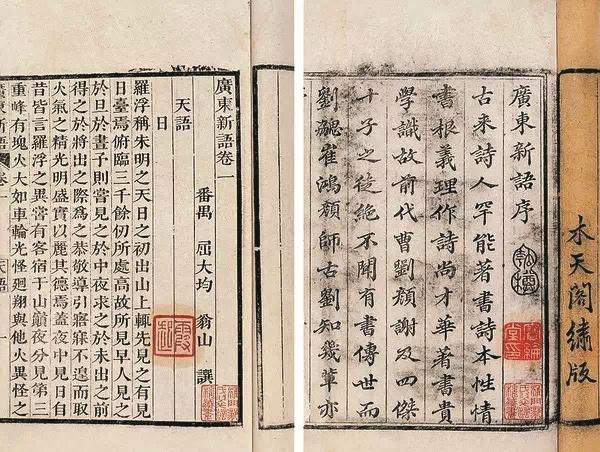 木天閣繡版
廣東新語序
古来詩人罕能著書詩本性情
書根義理作詩尚才華著書貴
學識故前代曹劉顔謝及四傑
十子之徒絶不聞有書傳世而
劉勰崔鴻顔師古劉知幾輩亦
廣東新語卷一
番禺 屈大均 翁山 譔
天語
日
羅浮稱朱明之天日之初出山上輒先見之有見
日臺焉俯臨三千餘仞所處高故所見早人見之
於旦於晝予則嘗見之於中夜求之於未出之前
得之於將出之際爲之恭敬導引寤寐不遑而取
火氣之精光明盛實以麗其德焉蓋夜中見日自
昔皆言羅浮之異嘗有客宿于山巔夜分見第三
重峰有塊火大如車輪光怪迴翔與他火異怪之
廣東新語 卷一 天語 一